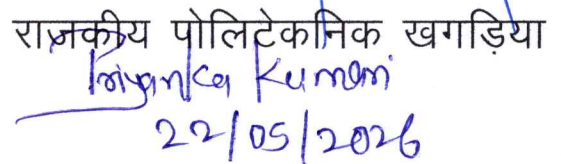 राजकीय पोलिटेकनिक खगड़िया
Priyanka Kumari
22/05/2026